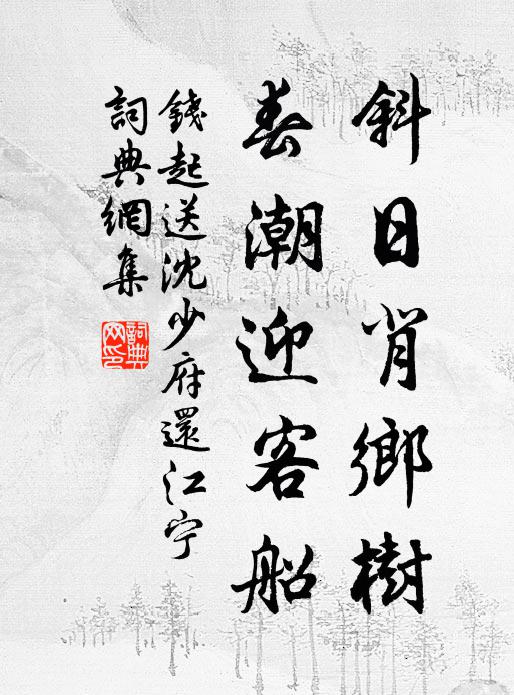 斜日肖鄉樹
春潮迎客船
錢起送沈少府還江宁
詞典網集
詞典网印